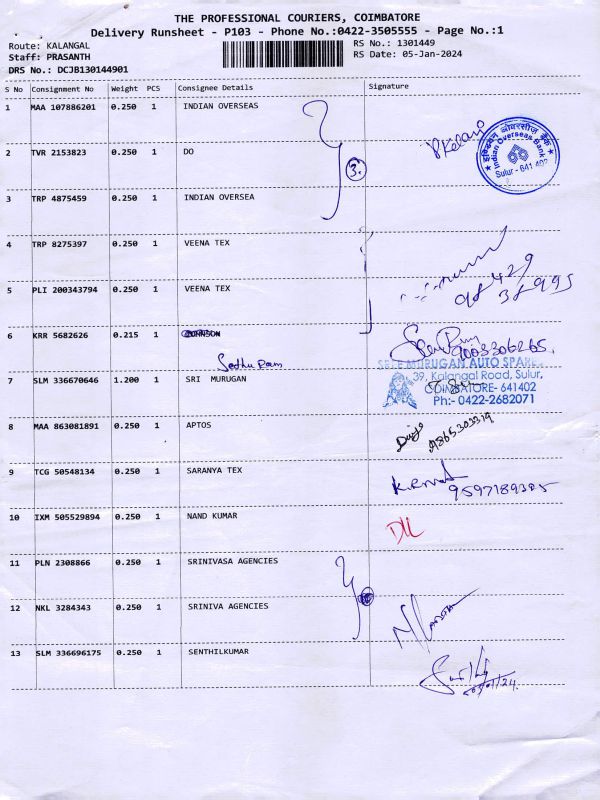 THE PROFESSIONAL COURIERS, COIMBATORE
Delivery Runsheet - P103 - Phone No.:0422-3505555 - Page No.:1
Route: KALANGAL RS No.: 1301449
Staff: PRASANTH RS Date: 05-Jan-2024
DRS No.: DCJB130144901
S No Consignment No Weight PCS Consignee Details Signature
1 MAA 107886201 0.250 1 INDIAN OVERSEAS
इंडियन ओवरसीज़ बैंक
Indian Overseas Bank
Sulur - 641 402
2 TVR 2153823 0.250 1 DO
3.
3 TRP 4875459 0.250 1 INDIAN OVERSEA
4 TRP 8275397 0.250 1 VEENA TEX
5 PLI 200343794 0.250 1 VEENA TEX
98 429
38995
6 KRR 5682626 0.215 1
9003306265.
Sedhu Ram
SREE MURUGAN AUTO SPARES
7 SLM 336670646 1.200 1 SRI MURUGAN
39, Kalangal Road, Sulur,
COIMBATORE- 641402
Ph:- 0422-2682071
8 MAA 863081891 0.250 1 APTOS
9 TCG 50548134 0.250 1 SARANYA TEX
10 IXM 505529894 0.250 1 NAND KUMAR
11 PLN 2308866 0.250 1 SRINIVASA AGENCIES
12 NKL 3284343 0.250 1 SRINIVA AGENCIES
13 SLM 336696175 0.250 1 SENTHILKUMAR